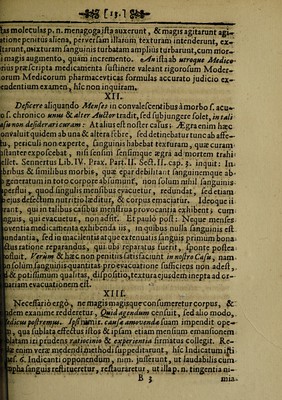 [13.]
tas moleculas p. n. menagoga ista auxerunt, & magis agitarunt agi-
tatione penitus aliena, perversam illarum texturam intenderunt, ex-
tarunt, mixturam sanguinis turbatam amplius turbarunt, cum mor-
i magis augmento, quam incremento. An ista ab utroque Medico-
rius præscripta medicamenta sustinere valeant rigorosum Moder-
orum Medicorum pharmacevticas formulas accurato judicio ex-
endentium examen, hîc non inquiram.
XII.
Deficere aliquando Menses in convalescentibus à morbo f. acu-
o f. chronico unus & alter Auctor tradit, sed subjungere solet, in tali
casu non desideratis curam: At alius est noster casus; Ægra enim hæc
onvaluit quidem ab una & altera febre, sed detinebatur tunc ab affe-
tu, periculi non experte, sanguinis habebat texturam, quæ curam
instantèr exposcebat, nisi sensim sensimque ægra ad mortem trahi
ellet. Sennertus Lib. IV. Prax. Part. II. Sect. II. cap. 3. inquit: In
ebribus & similibus morbis, quæ epar debilitant sanguinemque ab-
generatum in toto corpore absumunt, non solùm nihil sanguinis
superfui, quod singulis mensibus evacuetur, redundat, sed etiam
ejus defectum nutritio læditur, & corpus emaciatur. Ideoque ii
rrant, qui in talibus casibus menstrua provocantia exhibent; cum
nguis, qui evacuetur, non adsit. Et paulò post: Neque menses
oventia medicamenta exhibenda iis, in quibus nulla sanguinis est
bundantia, sed in macilentis atque extenuatis sanguis primum bona
ctus ratione reparandus, qui ubi reparatus fuerit, sponte postea
osfluit. Verùm & hæc non penitus satisfaciunt in nostro Casu, nam
n solùm sanguinis quantitas pro evacuatione sufficiens non adest,
d & potissimum qualitas, dispositio, textura quædem inepta ad or-
inariam evacuationem est.
XIII.
Necessariò ergò, ne magis magisque consumeretur corpus, &
dem exanime redderetur, Quid agendum censuit, sed alio modo,
Medicus postremus. Ipsi enim, causa amovenda suum impendit ope-
m, quâ sublatâ effectus istos & ipsam etiam mensium emansionem
blatam iri prudens ratiocinio & experientia firmatus collegit. Re-
tæ enim veræ medendi methodi suppeditarunt, hîc Indicatum isti
est. 6. Indicanti opponendum, nim. jusserunt, ut laudabilis cum-
mpha sanguis restitueretur, restauraretur, ut illa p. n. tingentia ni-
B 3
mia-